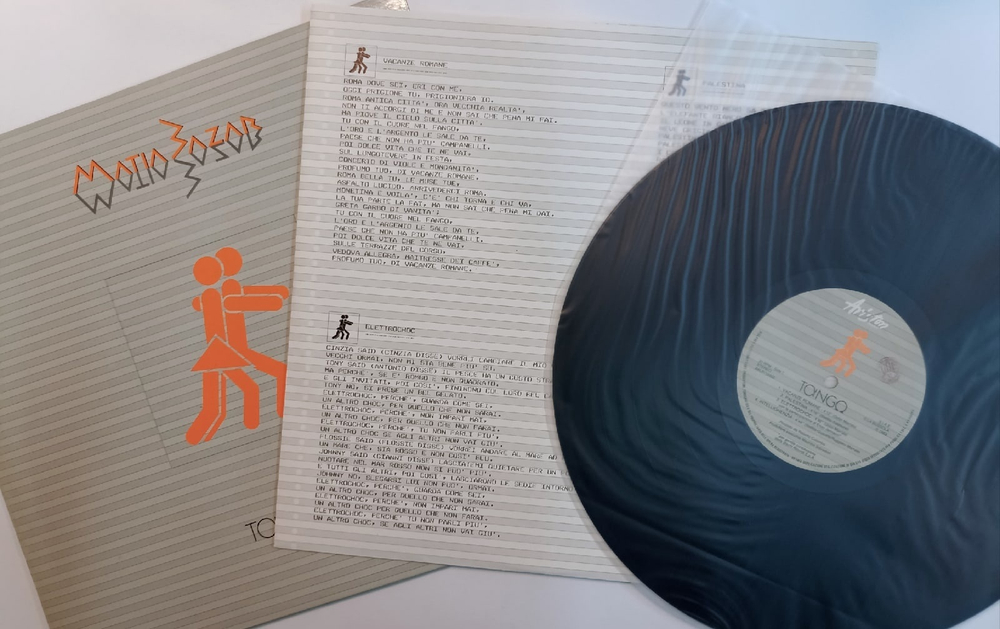 Matia Bazar
TO
VACANZE ROMANE
ROMA DOVE SEI, ERI CON ME,
OGGI PRIGIONE TU, PRIGIONIERA IO,
ROMA ANTICA CITTA', ORA VECCHIA REALTA',
NON TI ACCORGI DI ME E NON SAI CHE PENA MI FAI.
MA PIOVE IL CIELO SULLA CITTA',
TU CON IL CUORE NEL FANGO,
L'ORO E L'ARGENTO LE SALE DA TE,
PAESE CHE NON HA PIU' CAMPANELLI,
POI DOLCE VITA CHE TE NE VAI,
SUL LUNGOTEVERE IN FESTA,
CONCERTO DI VIOLE E MONDANITA',
PROFUMO TUO, DI VACANZE ROMANE,
ROMA BELLA TU, LE MUSE TUE,
ASFALTO LUCIDO, ARRIVEDERCI ROMA,
MONETINA E VOILA', C'E' CHI TORNA E CHI VA,
LA TUA PARTE LA FAI, MA NON SAI CHE PENA MI DAI.
GRETA GARBO DI VANITA',
TU CON IL CUORE NEL FANGO,
L'ORO E L'ARGENTO LE SALE DA TE,
PAESE CHE NON HA PIU' CAMPANELLI,
POI DOLCE VITA CHE TE NE VAI,
SULLE TERRAZZE DEL CORSO,
VEDOVA ALLEGRA, MAITRESSE DEI CAFFE',
PROFUMO TUO, DI VACANZE ROMANE.
ELETTROCHOC
CINZIA SAID (CINZIA DISSE) VORREI LANCIARE IL MIO
VECCHI ORMAI, NON MI STA BENE PIU' SU.
TONY SAID (ANTONIO DISSE) IL PESCE HA UN GUSTO
MA PERCHE', SE E' ROMBO E NON QUADRATO,
E GLI INVITATI, POI COSI', FINIRONO COL
TONY NO, SI PRESE UN BEL GELATO,
ELETTROCHOC, PERCHE', GUARDA COME SEI,
UN ALTRO CHOC, PER QUELLO CHE NON SARAI,
ELETTROCHOC, PERCHE', NON IMPARI MAI,
UN ALTRO CHOC PER QUELLO CHE NON FARAI,
ELETTROCHOC, PERCHE', TU NON PARLI PIU',
UN ALTRO CHOC SE AGLI ALTRI NON VAI GIU',
SAID DISSE) VORREI ANDARE AL MARE
UN MARE CHE, SIA ROSSO E NON COSI' BLU,
JOHNNY SAID (GIANNI DISSE) LASCIATEMI
NUOTARE NEL MAR ROSSO NON SI PUO' PIU',
E TUTTI GLI ALTRI, POI COSI', LASCIARONO LE SEDIE INTORNO
JOHNNY NO, SLEGARSI LUI NON PUO', ORMAI,
ELETTROCHOC, PERCHE', GUARDA COME SEI,
UN ALTRO CHOC, PER QUELLO CHE NON SARAI,
ELETTROCHOC, PERCHE', NON IMPARI MAI,
UN ALTRO CHOC PER QUELLO CHE NON FARAI,
ELETTROCHOC, PERCHE' TU NON PARLI PIU',
UN ALTRO CHOC, SE AGLI ALTRI NON VAI GIU'.
PALESTINA
Ariston
TANGO